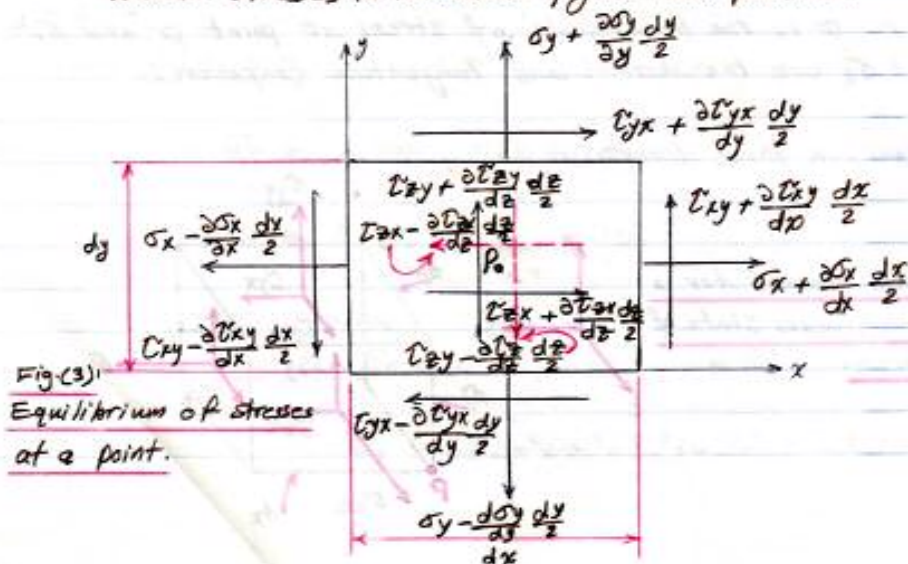 y
σy + ∂σy/∂y dy/2
τyx + ∂τyx/dy dy/2
τzy + ∂τzy/dz dz/2
τxy + ∂τxy/dx dx/2
σx - ∂σx/∂x dx/2
τzx - ∂τzx/dz dz/2
dy
P₀
σx + ∂σx/dx dx/2
τzx + ∂τzx/dz dz/2
τxy - ∂τxy/dx dx/2
τzy - ∂τz/dz dz/2
x
Fig.(3):
Equilibrium of stresses
at a point.
τyx - ∂τyx/dy dy/2
σy - dσy/dy dy/2
dx